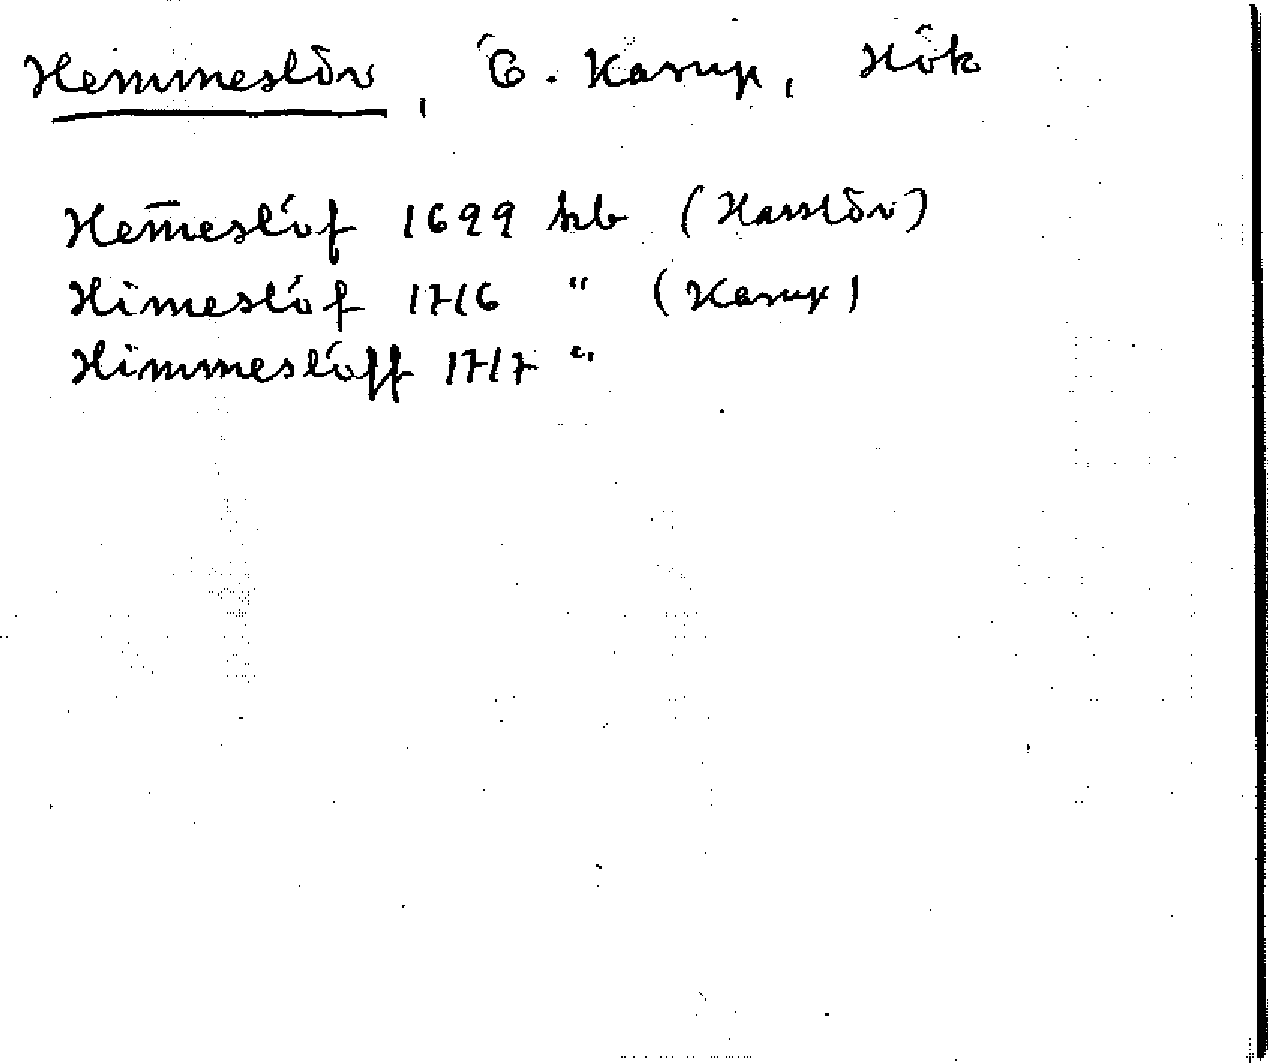 Hemmeslöv, Ö. Karup, Hök
Hem̄eslöf 1699 kb (Hasslöv)
Himeslöf 1716 " (Karup)
Himmeslöff 1717 "